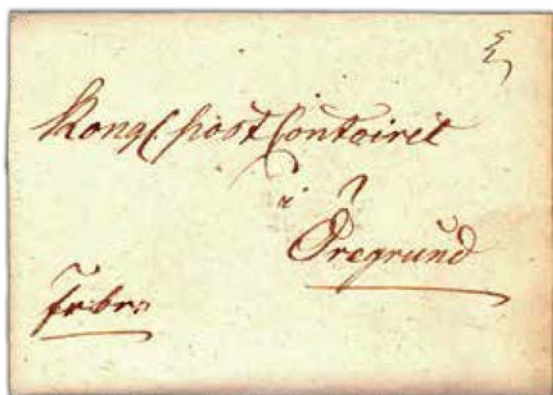 Kongl. post Contoiret
i
Öregrund
frbr: